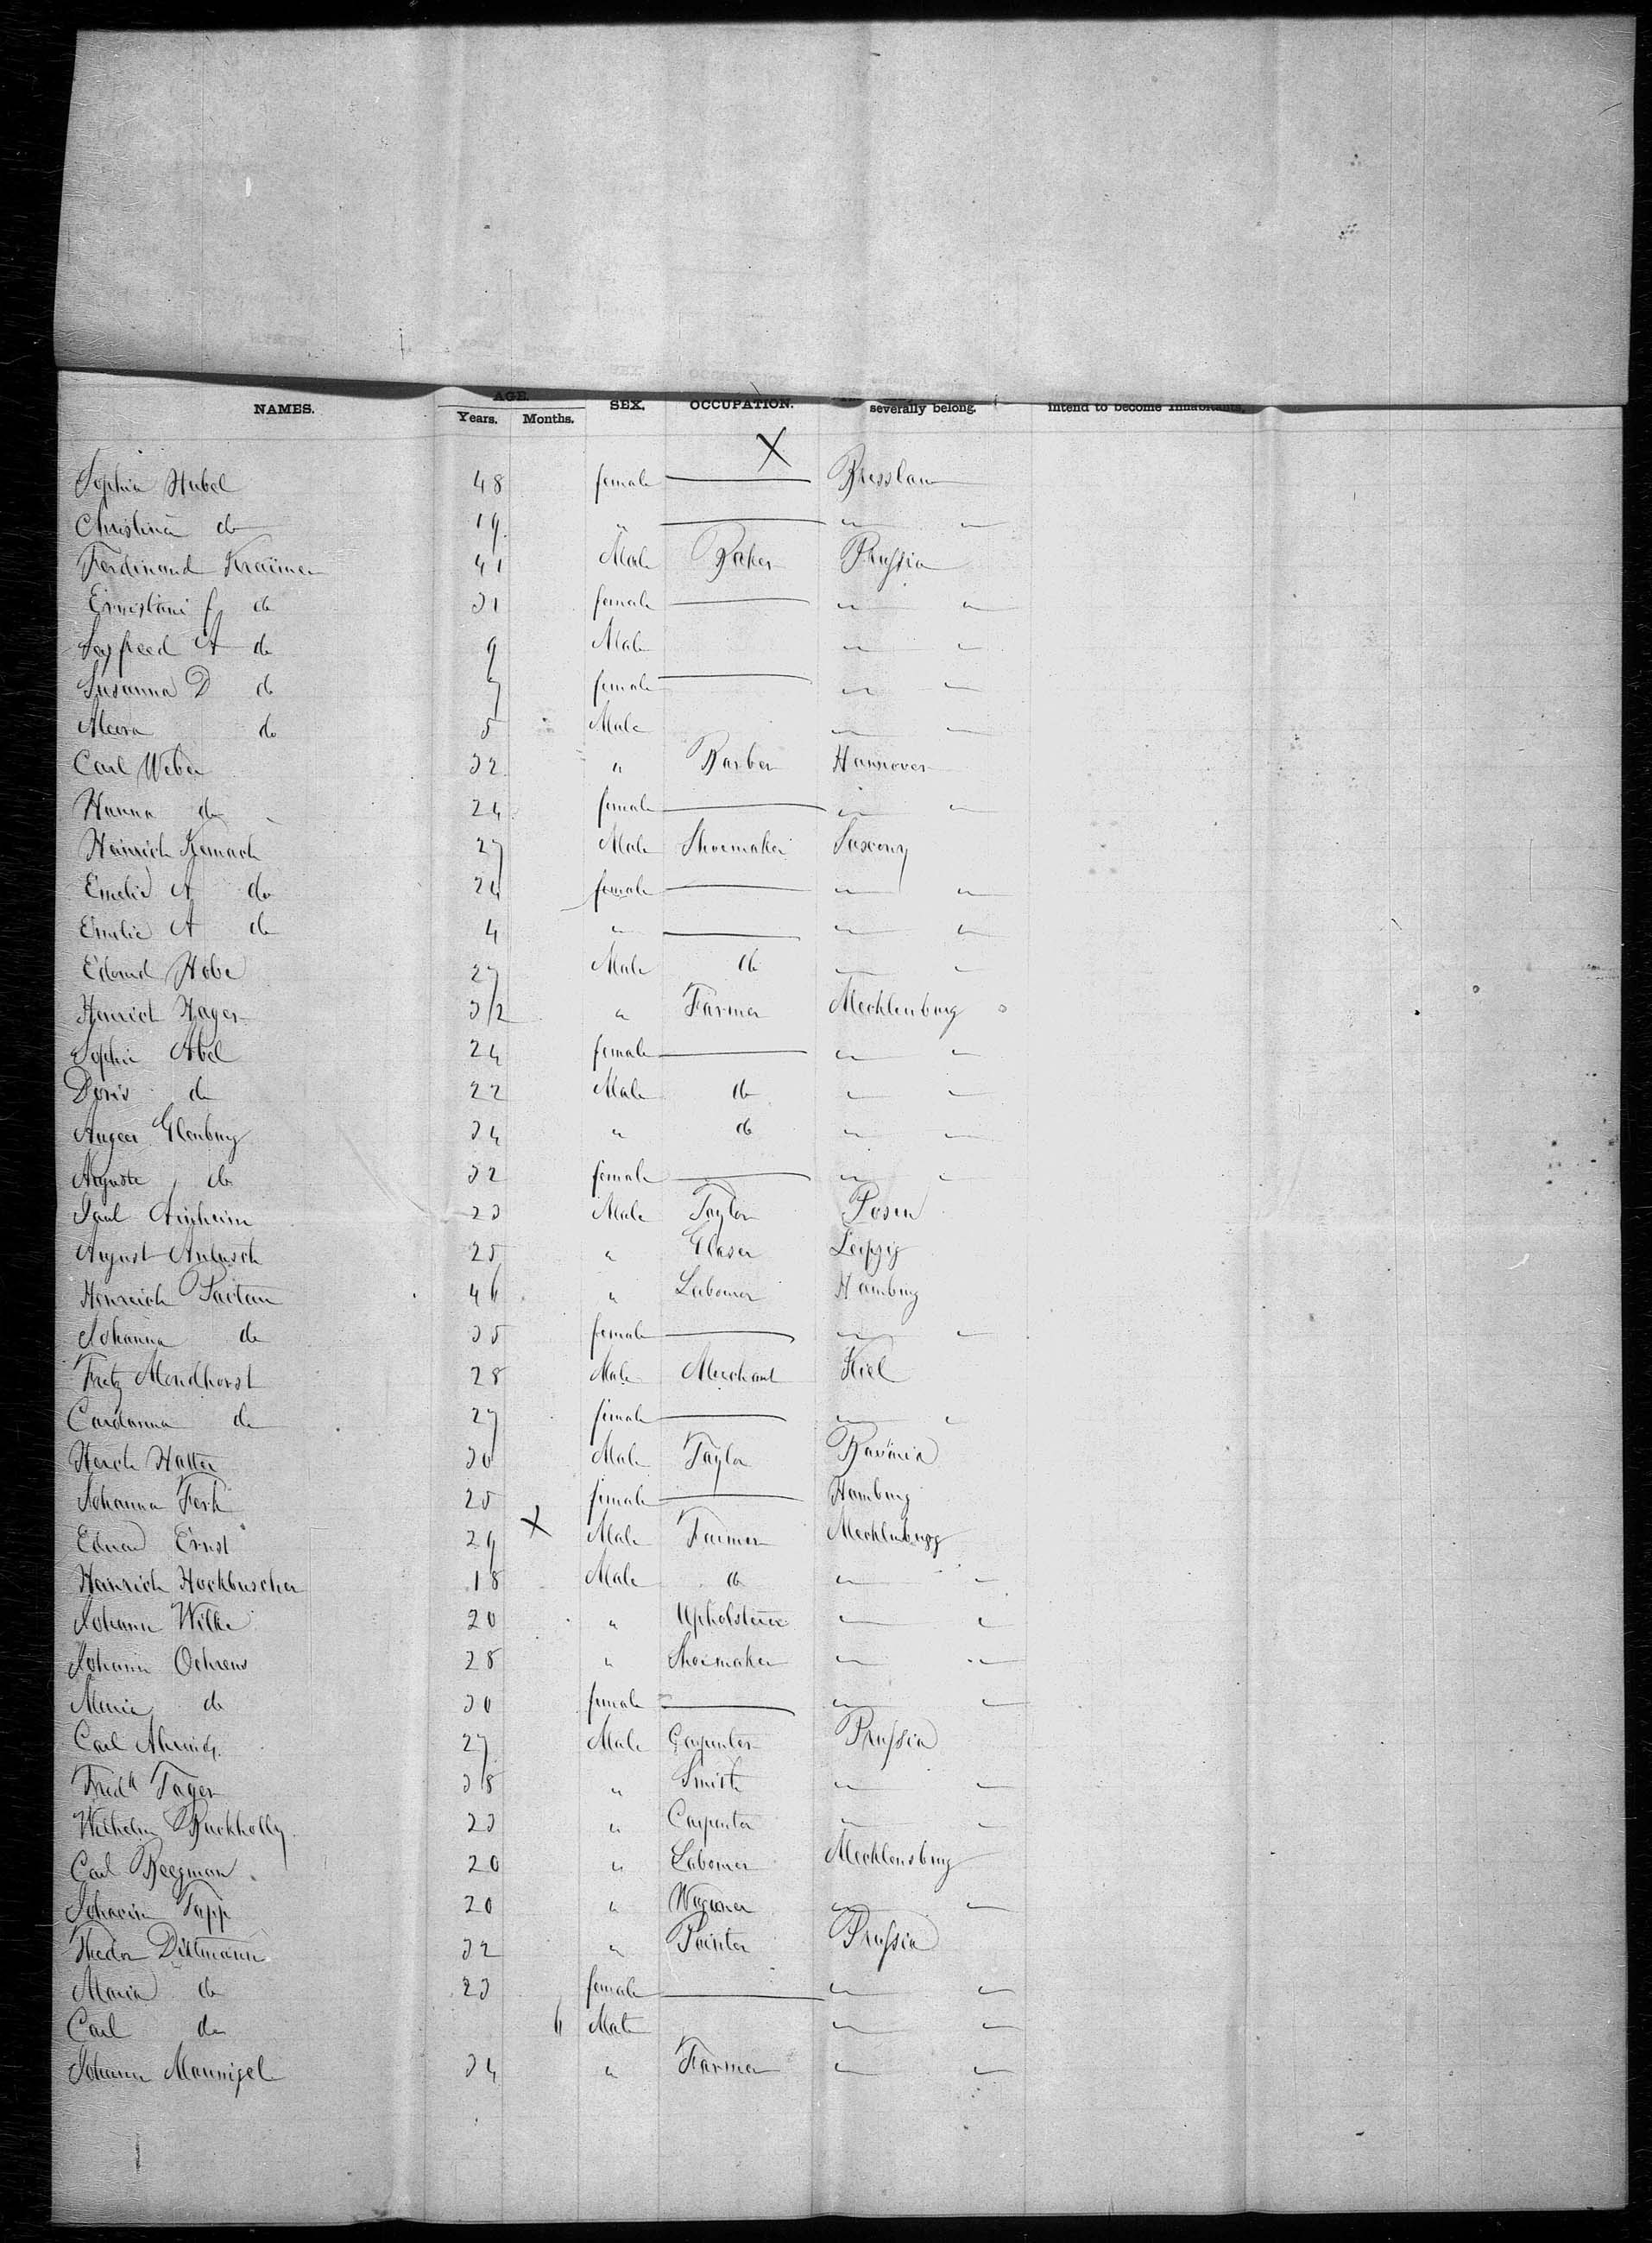 NAMES. AGE. Years. Months. SEX. OCCUPATION. severally belong. intend to become inhabitants.
X
Sophia Hubel 48 female — Bresslau
Christina do 19 " — " "
Ferdinand Kraümer 41 Male Baker Prussia
Ernistani f do 31 female — " "
Seyfreed A do 9 Male " "
Susanna D do 7 female — " "
do 5 Male " "
Carl Weber 32 " Barber Hannover
Hanna do 24 female — " "
Heinrich 27 Male Shoemaker Saxony
Emelie A do 24 female — " "
Emelie A do 4 " — " "
Eduard Hobe 27 Male do " "
Henrich Hager 32 " Farmer Mecklenburg
Sophie Abel 24 female — " "
Doris do 22 Male do " "
34 " do " "
Auguste do 32 female — " "
Paul Arnheim 23 Male Taylor Posen
August 25 " Glaser Leipzig
Henreich 46 " Labourer Hamburg
Johanna do 35 female — " "
Fritz Mendhorst 28 Male Merchant Kiel
do 27 female — " "
Hatter 30 Male Taylor Bavaria
Johanna Fork 25 female — Hamburg
Eduard Ernst 29 X Male Farmer Mecklenburg
Heinrich Hockbuscher 18 Male do " "
Johann Wilke 20 " Upholsterer " "
Johann Oehrens 28 " Shoemaker " "
Maria do 30 female — " "
Carl 27 Male Carpenter Prussia
Fredk Tager 38 " Smith " "
Wilhelm Buckholly 23 " Carpenter " "
Carl Beegman 20 " Labourer Mecklensburg
Johann Tapp 20 " Wagoner " "
Theodor Dittmann 32 " Painter Prussia
Maria do 23 female — " "
Carl do 6 Male " "
Johann Mannigel 34 " Farmer " "